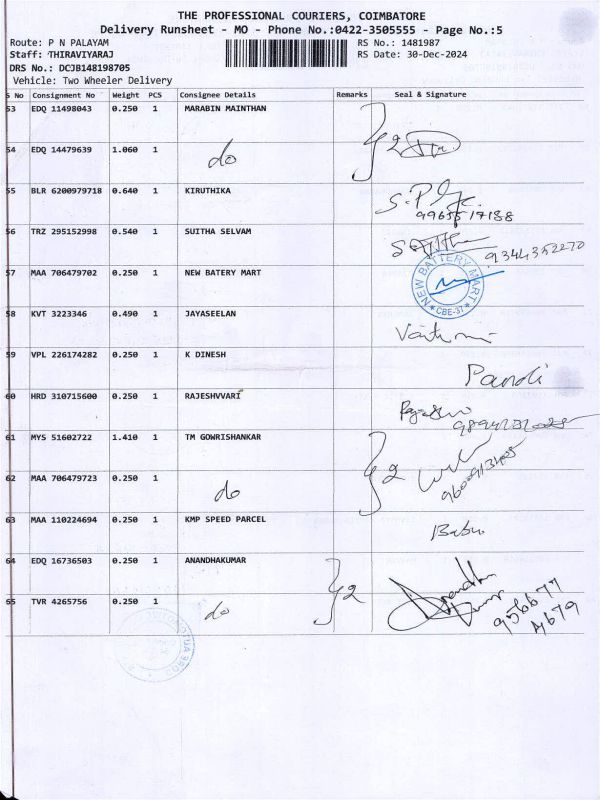 THE PROFESSIONAL COURIERS, COIMBATORE
Delivery Runsheet - MO - Phone No.:0422-3505555 - Page No.:5
Route: P N PALAYAM RS No.: 1481987
Staff: THIRAVIYARAJ RS Date: 30-Dec-2024
DRS No.: DCJB148198705
Vehicle: Two Wheeler Delivery
S No Consignment No Weight PCS Consignee Details Remarks Seal & Signature
53 EDQ 11498043 0.250 1 MARABIN MAINTHAN
2
54 EDQ 14479639 1.060 1 do
55 BLR 6200979718 0.640 1 KIRUTHIKA
56 TRZ 295152998 0.540 1 SUITHA SELVAM
9344352270
57 MAA 706479702 0.250 1 NEW BATERY MART
NEW BATTERY MART
CBE-37
58 KVT 3223346 0.490 1 JAYASEELAN
59 VPL 226174282 0.250 1 K DINESH
Pandi
60 HRD 310715600 0.250 1 RAJESHVVARI
61 MYS 51602722 1.410 1 TM GOWRISHANKAR
2
62 MAA 706479723 0.250 1 do
63 MAA 110224694 0.250 1 KMP SPEED PARCEL
Babu
64 EDQ 16736503 0.250 1 ANANDHAKUMAR
2
65 TVR 4265756 0.250 1 do
956677
4679